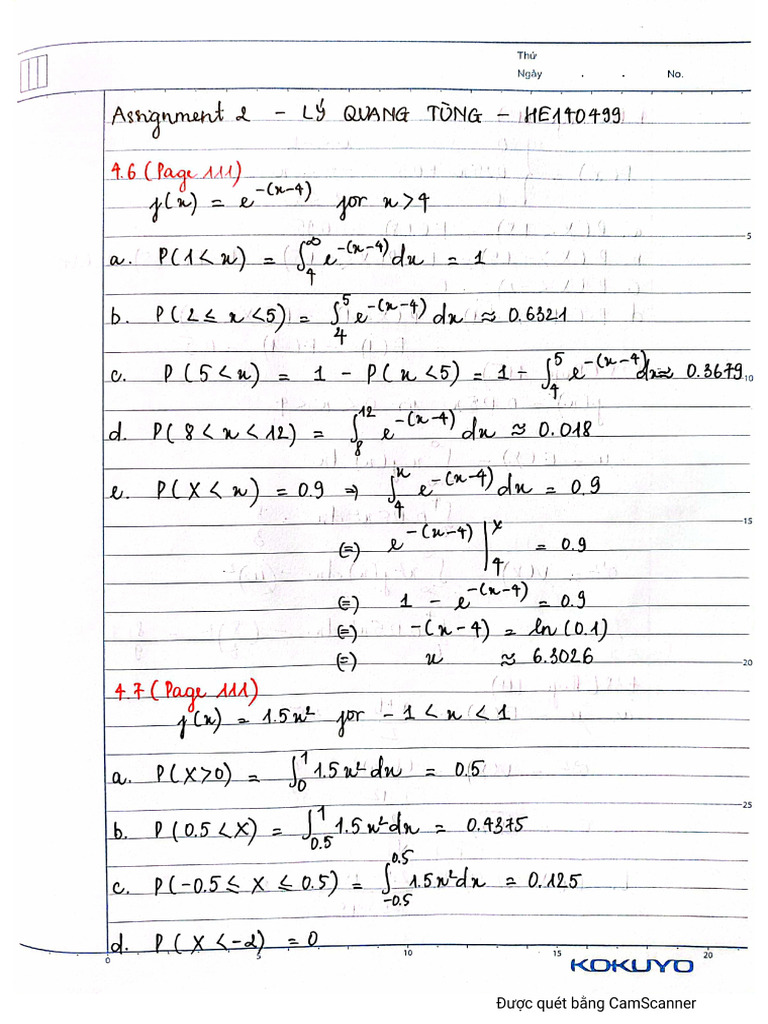 Thứ
Ngày . . No.
Assignment 2 - LÝ QUANG TÙNG - HE140499
4.6 (Page 111)
f(x) = e^{-(x-4)} for x > 4
a. P(1 < x) = ∫_4^∞ e^{-(x-4)} dx = 1
b. P(2 ≤ x < 5) = ∫_4^5 e^{-(x-4)} dx ≈ 0.6321
c. P(5 < x) = 1 - P(x < 5) = 1 - ∫_4^5 e^{-(x-4)} dx ≈ 0.3679
d. P(8 < x < 12) = ∫_8^12 e^{-(x-4)} dx ≈ 0.018
e. P(X < x) = 0.9 ⇒ ∫_4^x e^{-(x-4)} dx = 0.9
(=) e^{-(x-4)} |_4^x = 0.9
(=) 1 - e^{-(x-4)} = 0.9
(=) -(x-4) = ln(0.1)
(=) x ≈ 6.3026
4.7 (Page 111)
f(x) = 1.5x² for -1 < x < 1
a. P(X>0) = ∫_0^1 1.5x² dx = 0.5
b. P(0.5 < X) = ∫_0.5^1 1.5x² dx = 0.4375
c. P(-0.5 ≤ X ≤ 0.5) = ∫_-0.5^0.5 1.5x² dx = 0.125
d. P(X < -2) = 0
5
10
15
20
25
0 5 10 15 20
KOKUYO
Được quét bằng CamScanner